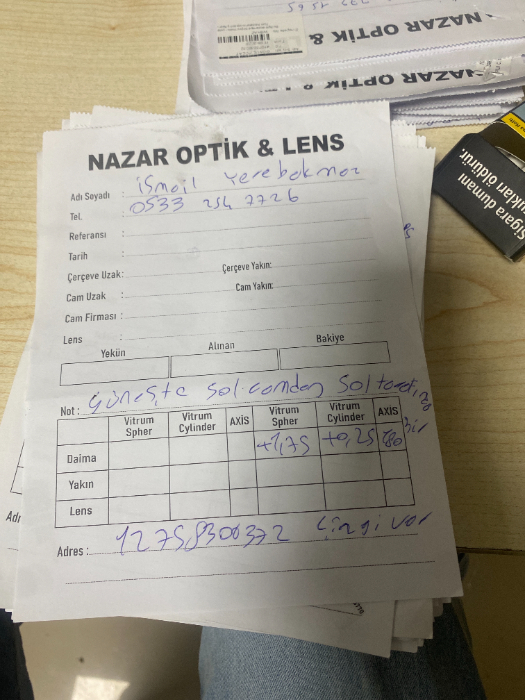 NAZAR OPTİK &
NAZAR OPTİK &
Sigara dumanı
öldürür.
NAZAR OPTİK & LENS
Adı Soyadı : ismail Yerebakmaz
Tel. : 0533 254 7726
Referansı :
Tarih :
Çerçeve Uzak: Çerçeve Yakın:
Cam Uzak : Cam Yakın:
Cam Firması :
Lens :
Yekün Alınan Bakiye
Not : Güneşte sol camdan sol
Vitrum Spher Vitrum Cylinder AXİS Vitrum Spher Vitrum Cylinder AXİS
Daima +1,75 +0,25 180 bir
Yakın
Lens
Adres : 12758300372 Çizgi var